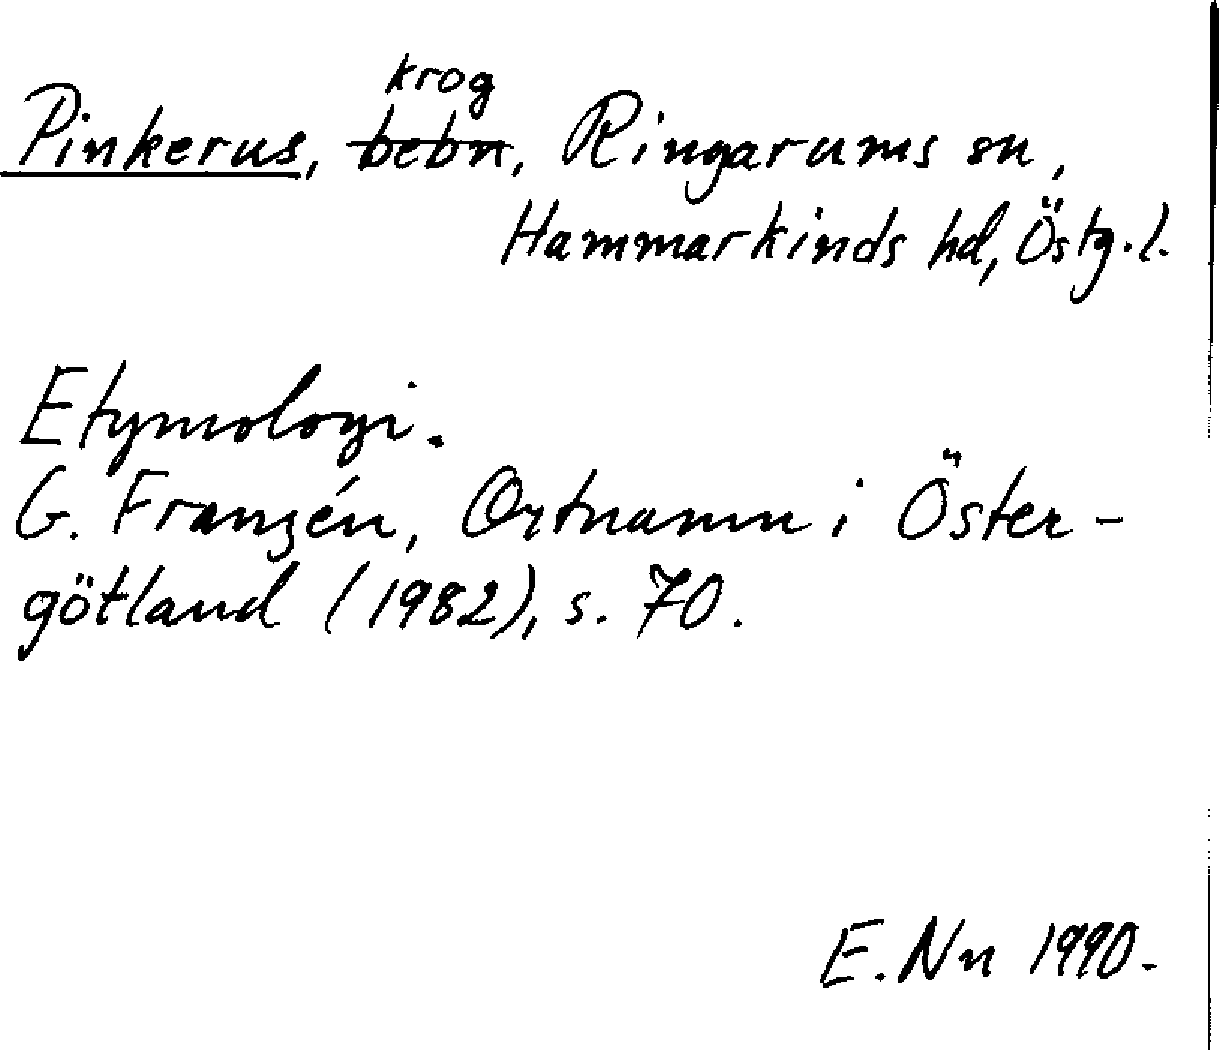 Pinkerus, krog bebn, Ringarums sn,
Hammarkinds hd, Östg.l.
Etymologi.
G. Franzén, Ortnamn i Öster-
götland (1982), s. 70.
E. Nn 1990.